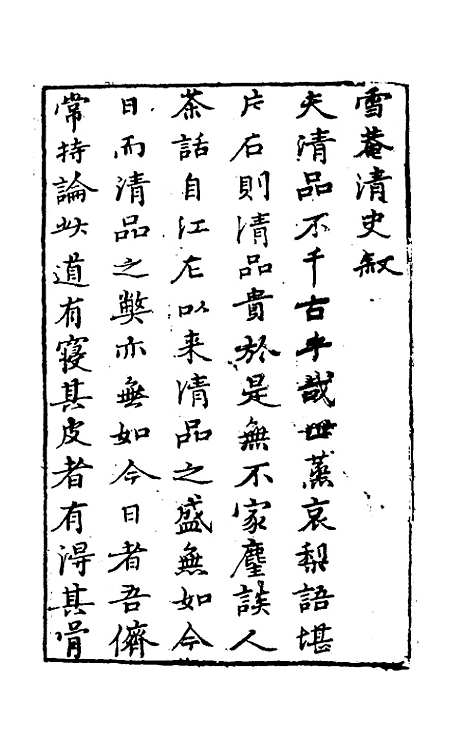 雪菴清史敘
夫清品不千古乎哉世蒸哀梨語堪
片石則清品貴於是無不家麈談人
茶話自江左以来清品之盛無如今
日而清品之獘亦無如今日者吾儕
常持論此道有寢其皮者有淂其骨